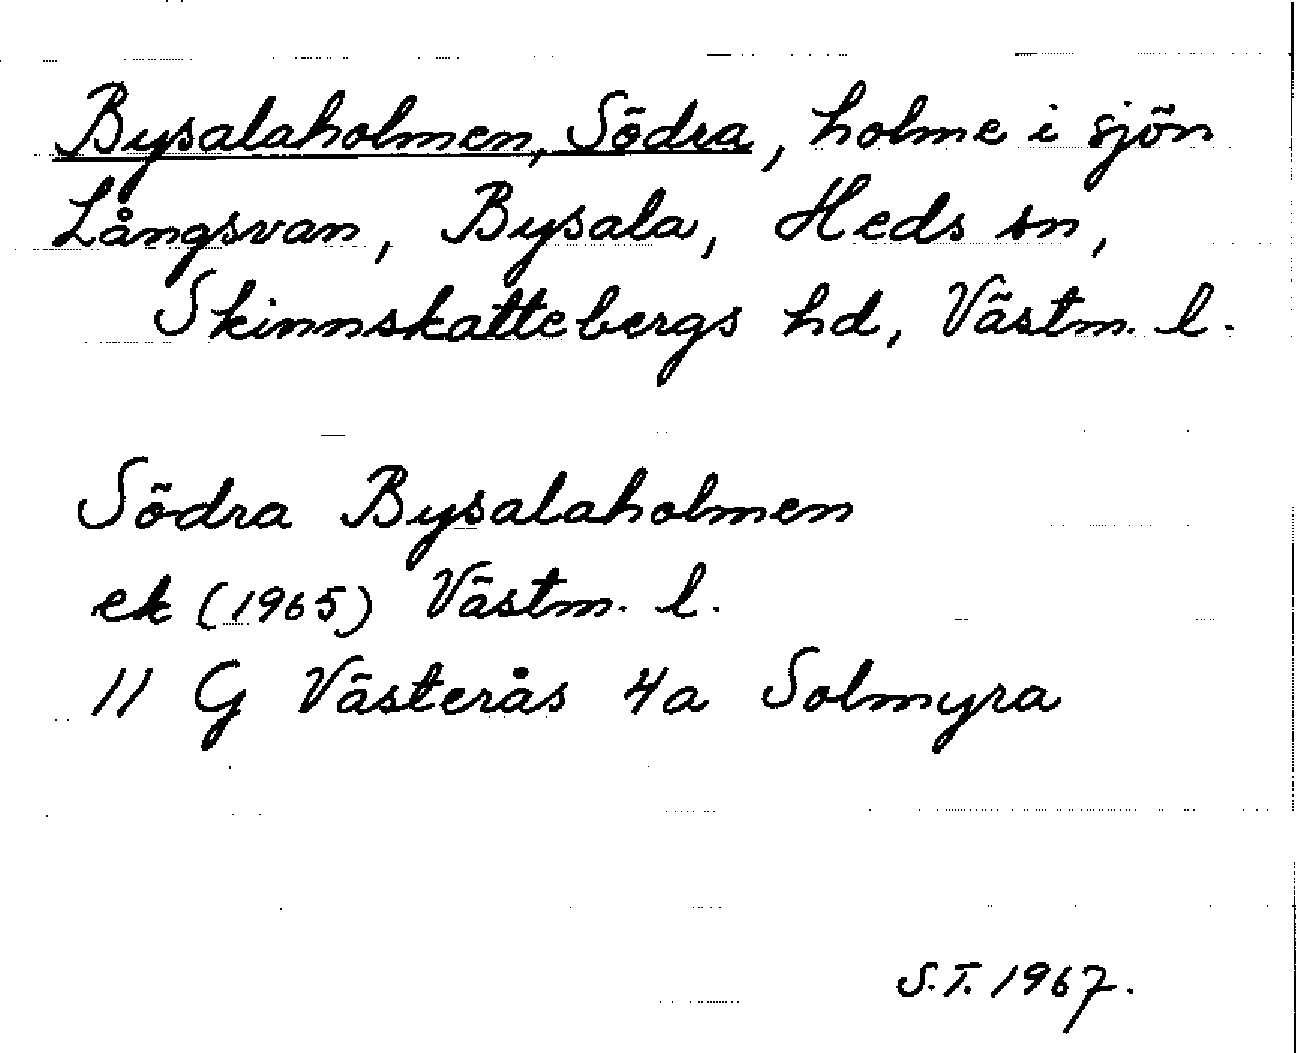 Bysalaholmen, Södra, holme i sjön
Långsvan, Bysala, Heds sn,
Skinnskattebergs hd, Västm. l.
Södra Bysalaholmen
ek (1965) Västm. l.
11 G Västerås 4a Solmyra
S.T. 1967.